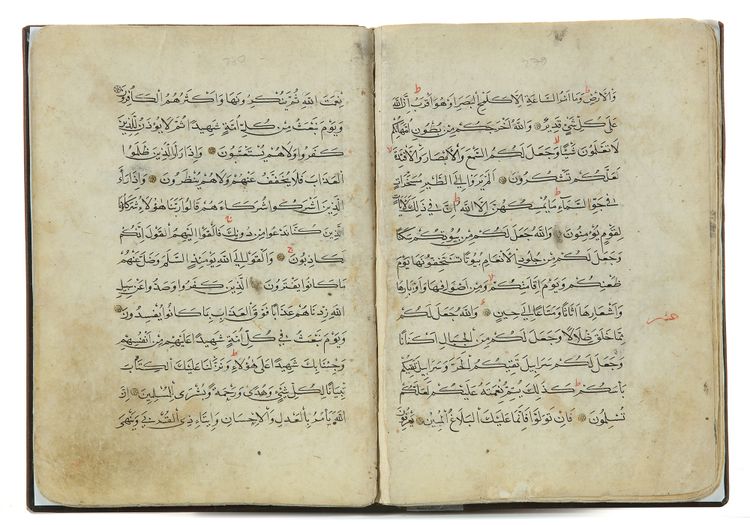 والارض وما امر الساعة الا كلمح البصر او هو اقرب ان الله
على كل شيء قدير والله اخرجكم من بطون امهاتكم
لا تعلمون شيئا وجعل لكم السمع والابصار والافئدة
لعلكم تشكرون الم يروا الى الطير مسخرات
في جو السماء ما يمسكهن الا الله ان في ذلك لآيات
لقوم يؤمنون والله جعل لكم من بيوتكم سكنا
وجعل لكم من جلود الانعام بيوتا تستخفونها يوم
ظعنكم ويوم اقامتكم ومن اصوافها واوبارها
واشعارها اثاثا ومتاعا الى حين والله جعل لكم
عشر
مما خلق ظلالا وجعل لكم من الجبال اكنانا
وجعل لكم سرابيل تقيكم الحر وسرابيل تقيكم
باسكم كذلك يتم نعمته عليكم لعلكم
تسلمون فان تولوا فانما عليك البلاغ المبين يعرفون
نعمت الله ثم ينكرونها واكثرهم الكافرون
ويوم نبعث من كل امة شهيدا ثم لا يؤذن للذين
كفروا ولا هم يستعتبون واذا را الذين ظلموا
العذاب فلا يخفف عنهم ولا هم ينظرون واذا راء
الذين اشركوا شركاءهم قالوا ربنا هؤلاء شركاؤنا
الذين كنا ندعوا من دونك فالقوا اليهم القول انكم
لكاذبون والقوا الى الله يومئذ السلم وضل عنهم
ما كانوا يفترون الذين كفروا وصدوا عن سبيل
الله زدناهم عذابا فوق العذاب بما كانوا يفسدون
ويوم نبعث في كل امة شهيدا عليهم من انفسهم
وجئنا بك شهيدا على هؤلاء ونزلنا عليك الكتاب
تبيانا لكل شيء وهدى ورحمة وبشرى للمسلمين ان
الله يامر بالعدل والاحسان وايتاء ذي القربى وينهى